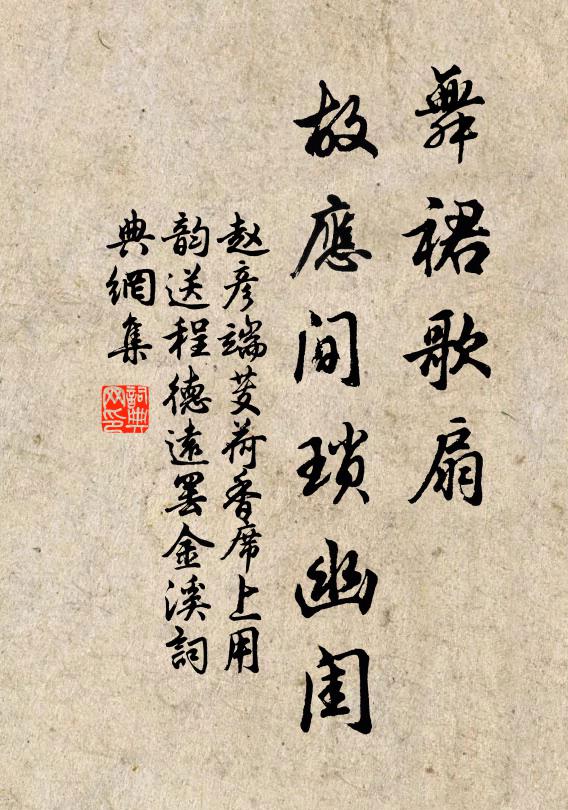 舞裙歌扇
故應閒瑣幽閨
赵彦端芰荷香席上用
韵送程德遠罢金溪詞
典網集
詞典网印